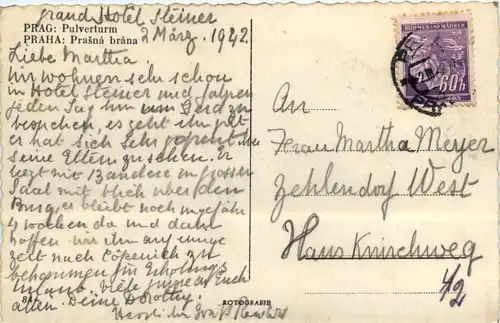 Grand Hotel Steiner
PRAG: Pulverturm
PRAHA: Prašná brána
2 März. 1942
Liebe Martha
Wir wohnen sehr schön
in Hotel Steiner und fahren
jeden Tag hin um Gerd zu
besuchen, es geht ihm gut
er hat sich sehr gefreut über
seine Eltern zu sehen. Er
liegt mit Banderen in grossen
Saal mit blick über den
Burg, er bleibt noch ungefähr
4 wochen da und dann
hoffen wir ihn auf
zeit nach Cöpenick zu
bekommen für Erholungs
Urlaub. viele Grüsse an Euch
allen. Deine Dorothy.
Herzlichen Gruß
ROTOGRAFIE
BÖHMEN UND MÄHREN
60h
An
Frau Martha Meyer
Zehlendorf West
Hans Knirschweg
42